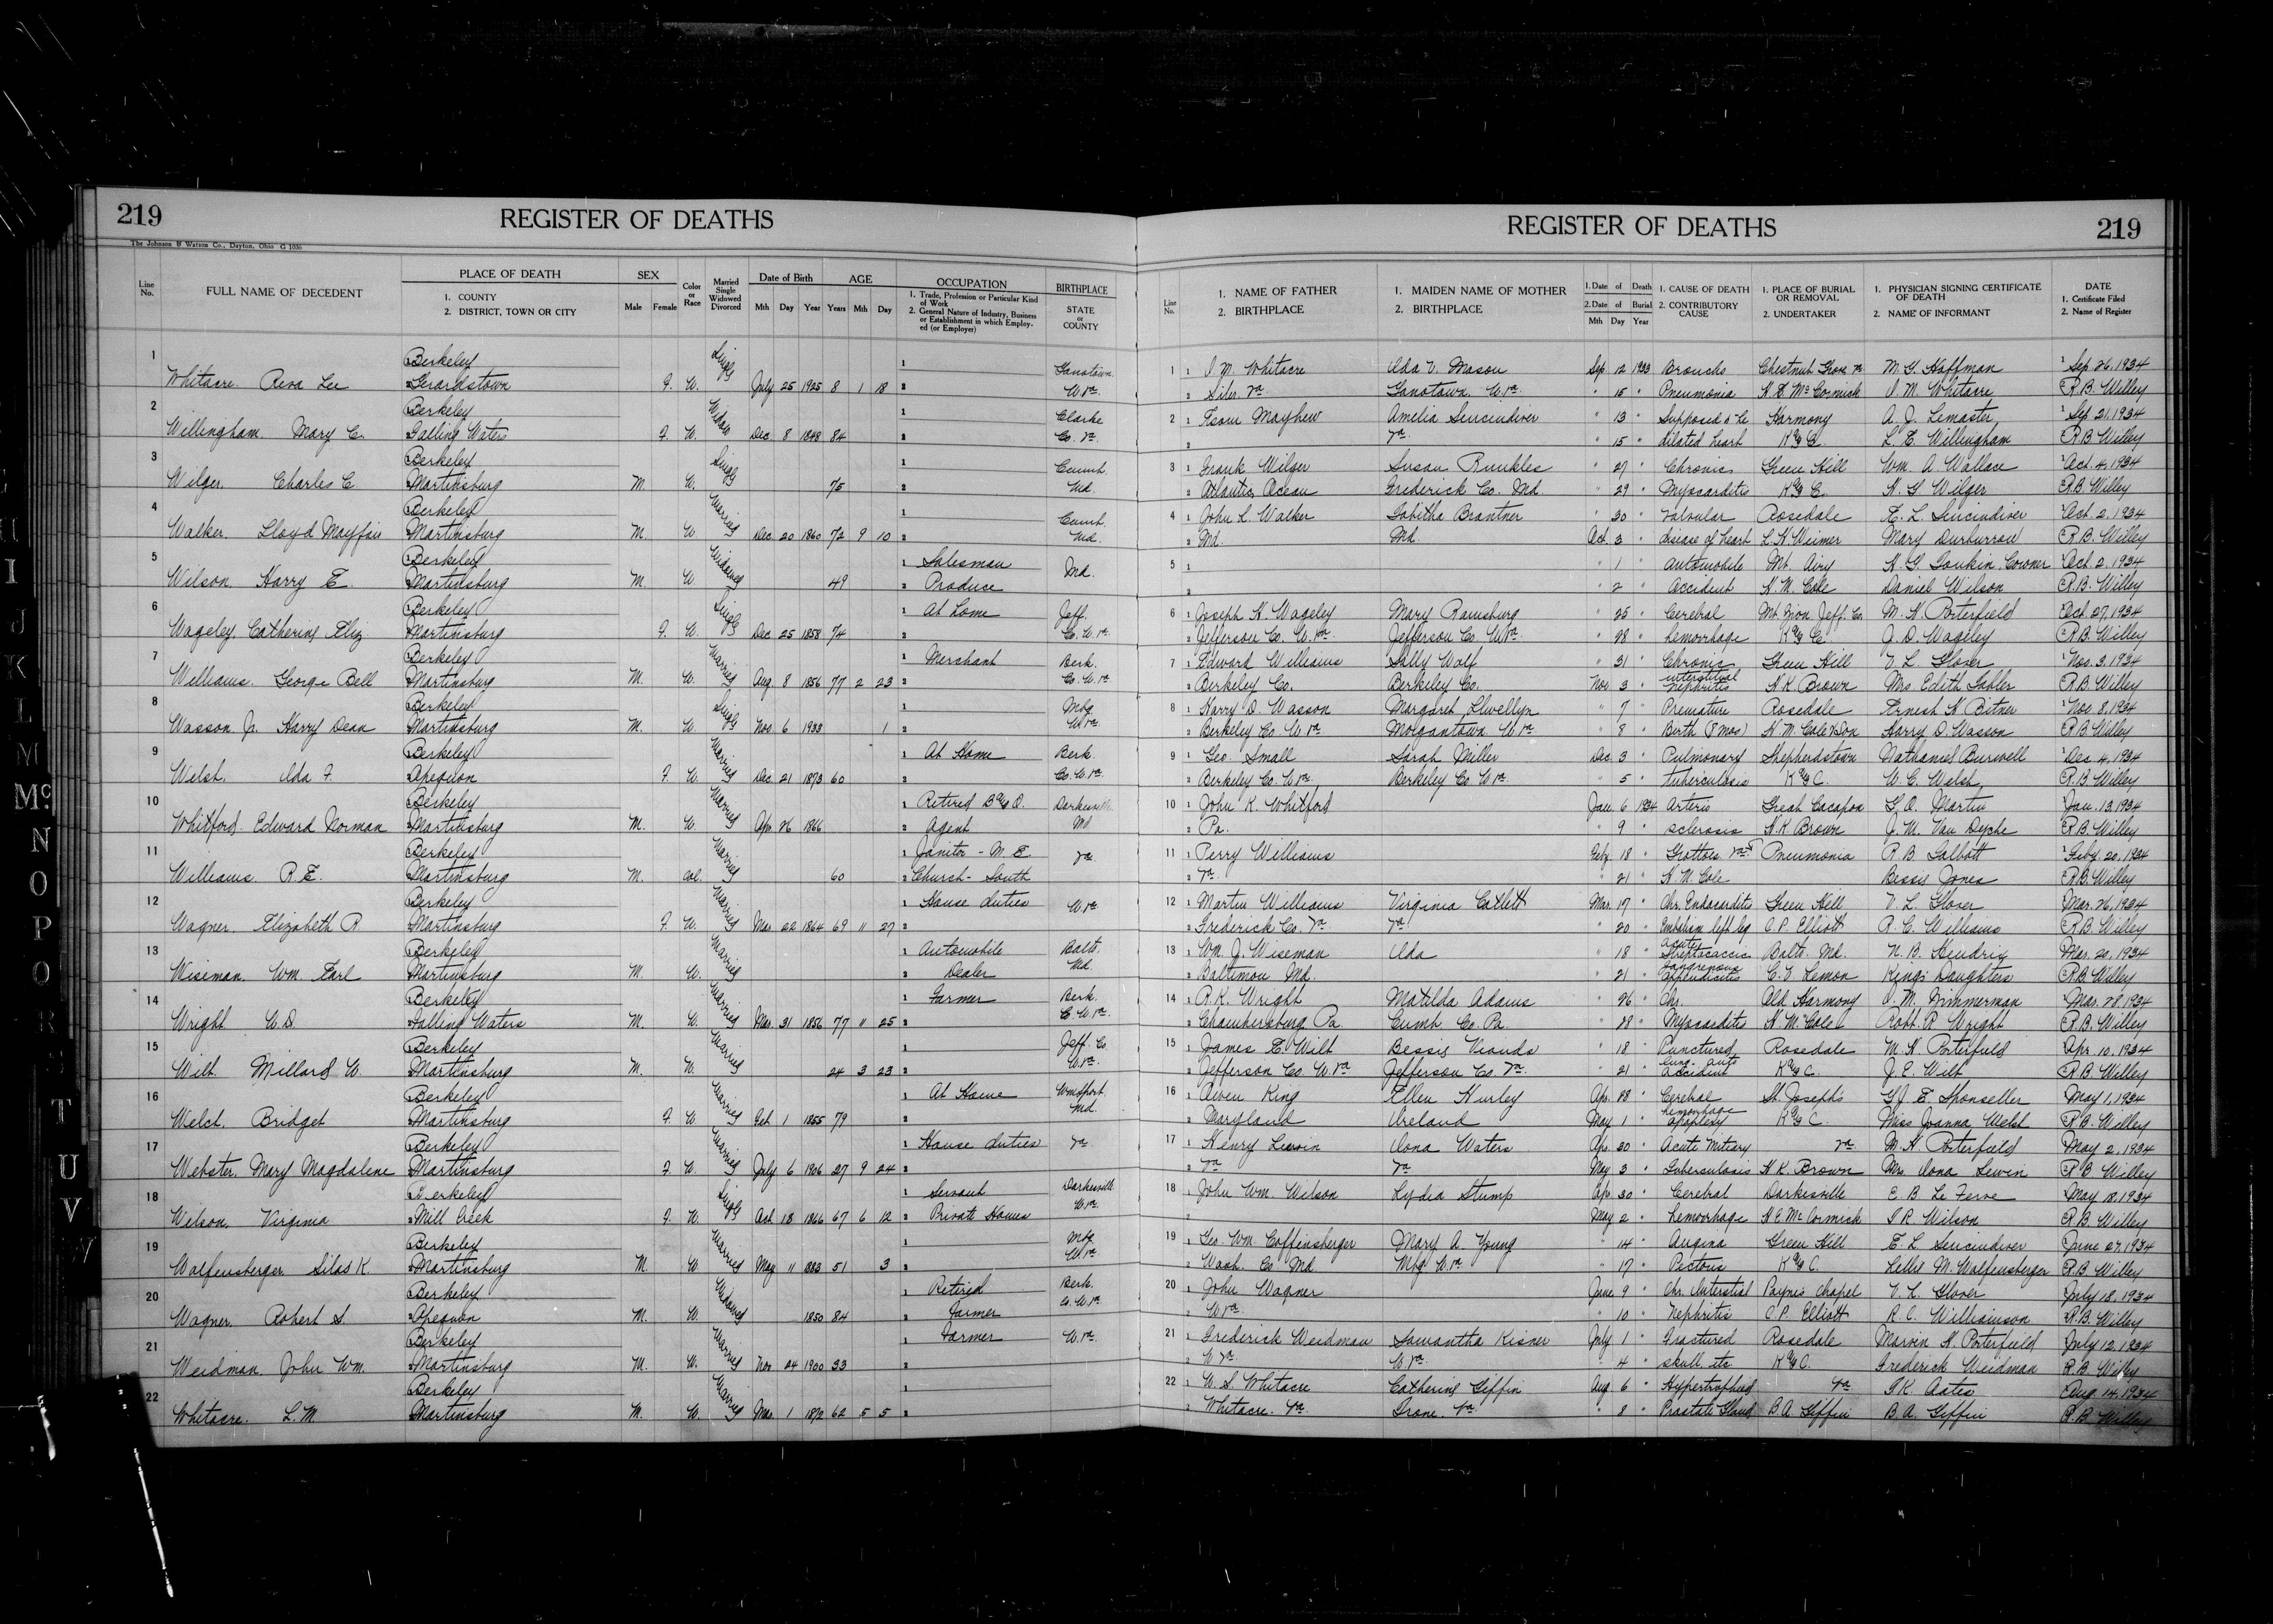 219
REGISTER OF DEATHS
The Johnson & Watson Co., Dayton, Ohio G 1036
Line No.
FULL NAME OF DECEDENT
PLACE OF DEATH
1. COUNTY
2. DISTRICT, TOWN OR CITY
SEX
Male Female
Color or Race
Married Single Widowed Divorced
Date of Birth
Mth Day Year
AGE
Years Mth Day
OCCUPATION
1. Trade, Profession or Particular Kind of Work
2. General Nature of Industry, Business or Establishment in which Employed (or Employer)
BIRTHPLACE
STATE or COUNTY
1 Berkeley Single Ganotown
Whitacre. Reva Lee Gerardstown F. W. July 25 1925 8 1 18 W. Va.
2 Berkeley Widow Clarke
Willingham. Mary C. Falling Waters F. W. Dec 8 1848 84 Co. Va.
3 Berkeley Single Cumb.
Wilger. Charles C Martinsburg M. W. 75 Md.
4 Berkeley Married Cumb.
Walker. Lloyd Mayfair Martinsburg M. W. Dec. 20 1860 72 9 10 Md.
5 Berkeley Widowed Salesman Md.
Wilson Harry E. Martinsburg M. W 49 Produce
6 Berkeley Single At Home Jeff.
Wageley. Catherine Eliz Martinsburg F. W. Dec 25 1858 74 Co. W. Va.
7 Berkeley Married Merchant Berk.
Williams. George Bell Martinsburg M. W. Aug. 8 1856 77 2 23 Co. W. Va
8 Berkeley Single Mbg
Wasson Jr. Harry Dean Martinsburg M. W. Nov 6 1933 1 W. Va.
9 Berkeley Married At Home Berk.
Welsh. Ida F. Opequon F. W. Dec. 21 1873 60 Co. W. Va.
10 Berkeley Married Retired B & O. Darkesville
Whitford. Edward Norman Martinsburg M. W. Apr 26 1866 Agent Md
11 Berkeley Married Janitor - M. E. Va
Williams R. E. Martinsburg M. Col. 60 Church - South
12 Berkeley Married House duties W. Va.
Wagner. Elizabeth R Martinsburg F. W. Mar. 22 1864 69 11 27
13 Berkeley Married Automobile Balto.
Wiseman. Wm. Earl Martinsburg M. W. Dealer Md.
14 Berkeley Married Farmer Berk.
Wright W. D. Falling Waters M. W. Mar. 31 1856 77 11 25 C. W. Va.
15 Berkeley Married Jeff. Co
Wilt. Millard W. Martinsburg M. W. 24 3 23 W. Va.
16 Berkeley Married At Home Wmsport
Welch. Bridget Martinsburg F. W Feb 1 1855 79 Md.
17 Berkeley Married House duties Va
Webster, Mary Magdalene Martinsburg F. W. July 6 1906 27 9 24
18 Berkeley Single Servant Darkesville
Wilson. Virginia Mill Creek F. W. Oct 18 1866 67 6 12 Private Homes W. Va.
19 Berkeley Married Mbg
Wolfensberger. Silas K. Martinsburg M. W May 11 1883 51 3 W. Va
20 Berkeley Widowed Retired Berk.
Wagner. Robert S. Opequon M. W. 1850 84 Farmer Co. W. Va
21 Berkeley Married Farmer W. Va.
Weidman John Wm. Martinsburg M. W. Nov 24 1900 33
22 Berkeley Married
Whitacre. L. M Martinsburg M. W. Mar. 1 1872 62 5 5
REGISTER OF DEATHS
219
Line No.
1. NAME OF FATHER
2. BIRTHPLACE
1. MAIDEN NAME OF MOTHER
2. BIRTHPLACE
1. Date of Death
2. Date of Burial
Mth Day Year
1. CAUSE OF DEATH
2. CONTRIBUTORY CAUSE
1. PLACE OF BURIAL OR REMOVAL
2. UNDERTAKER
1. PHYSICIAN SIGNING CERTIFICATE OF DEATH
2. NAME OF INFORMANT
DATE
1. Certificate Filed
2. Name of Register
1 1 Whitacre Ida V. Mason Sep. 12 1933 Broncho Chestnut Grove Va M. G. Hoffman Sep 26, 1934
2 Siler. Va. Ganotown. W. Va. " 15 " Pneumonia McCormick Whitacre R. B. Willey
2 1 Mayhew Amelia Seincindiver " 13 " Supposed to be Harmony A. J. Lemaster Sep 21, 1934
2 Va. " 15 " dilated heart K & C. L. E. Willingham R. B. Willey
3 1 Frank Wilger Susan Runkles " 27 " Chronic Green Hill Wm. A. Wallace Oct. 4, 1934
2 Atlantic Ocean Frederick Co. Md. " 29 " Myocarditis K & C. H. G Wilger R. B. Willey
4 1 John L. Walker Tabitha Brantner " 30 " Valvular Rosedale E. L. Sencindiver Oct. 2, 1934
2 Md. Md. Oct. 3 " disease of heart L. H. Weimer Mary Durburrow R. B. Willey
5 1 " 1 " automobile Mt. Airy Coroner Oct. 2, 1934
2 " 2 " accident H. M. Cole Daniel Wilson R. B. Willey
6 1 Joseph H. Wageley Mary Ramsburg " 25 " Cerebral Mt. Zion Jeff. Co. M. H. Porterfield Oct. 27, 1934
2 Jefferson Co. W. Va. Jefferson Co. W. Va. " 28 " hemorrhage K & C. J. D. Wageley R. B. Willey
7 1 Edward Williams Sally Wolf " 31 " Chronic Green Hill V. L. Glover Nov. 3, 1934
2 Berkeley Co. Berkeley Co. Nov. 3 " interstitial nephritis H. K. Brown Mrs. Edith Gabler R. B. Willey
8 1 Harry D. Wasson Margaret Llwellyn " 7 " Premature Rosedale Ernest H Bitner Nov 8, 1934
2 Berkeley Co W. Va Morgantown. W. Va " 8 " Birth (8 mos) H. M. Cole & Son Harry D. Wasson R. B. Willey
9 1 Geo. Small Sarah Miller Dec. 3 " Pulmonary Shepherdstown Nathaniel Burwell Dec 4, 1934
2 Berkeley Co. W. Va. Berkeley Co. W. Va " 5 " tuberculosis K & C. W. C. Welsh R. B. Willey
10 1 John K. Whitford Jan. 6 1934 Arterio Great Cacapon G. O. Martin Jan. 13, 1934
2 Pa. " 9 " sclerosis H. K Brown J. M. Van Dyche R. B. Willey
11 1 Perry Williams Feby. 18 " Grottoes Va. Pneumonia R. B. Talbott Feby. 20, 1934
2 Va. " 21 " H. M Cole Bessie Jones R. B. Willey
12 1 Martin Williams Virginia Catlett Mar. 17 " Chr. Endocarditis Green Hill V. L. Glover Mar. 26, 1934
2 Frederick Co. Va. Va. " 20 " left leg O. P. Elliott R. C. Williams R. B. Willey
13 1 Wm. J. Wiseman Ida " 18 " acute Streptococcic Balto. Md. N. B. Hendrix Mar. 20, 1934
2 Baltimore Md. " 21 " gangrenous appendicitis C. V. Lemon Kings Daughters R. B. Willey
14 1 R. K. Wright Matilda Adams " 26 " Chr. Old Harmony Zimmerman Mar. 28, 1934
2 Chambersburg Pa. Cumb Co. Pa. " 28 " Myocarditis H. M. Cole Robt. R Wright R. B. Willey
15 1 James E. Wilt Bessie Viands " 18 " Punctured Rosedale M. H. Porterfield Apr. 10, 1934
2 Jefferson Co. W. Va Jefferson Co. Va. " 21 " lung - auto accident K & C. J. E. Wilt R. B. Willey
16 1 Owen King Ellen Hurley Apr. 28 " Cerebral St. Joseph's G. J. E. Sponseller May 1, 1934
2 Maryland Ireland May 1 " hemorrhage apoplexy K & C. Miss Joanna Welsh R. B. Willey
17 1 Henry Lewin Iona Waters Apr. 30 " Acute Miliary Va. M. H. Porterfield May 2, 1934
2 Va. Va. May 3 " Tuberculosis H. K. Brown Mrs. Iona Lewin R. B. Willey
18 1 John Wm. Wilson Lydia Stump Apr. 30 " Cerebral Darkesville E. B. Le Ferve May 18, 1934
2 May 2 " hemorrhage H. E. McCormick Wilson R. B. Willey
19 1 Geo. Wm. Coffinsberger Mary A. Young " 14 " Angina Green Hill E. L. Sencindiver June 27, 1934
2 Wash. Co Md Mbg W. Va. " 17 " Pectoris K & C. M. Wolfensberger R. B. Willey
20 1 John Wagner June 9 " Chr. Interstial Paynes Chapel V. L. Glover July 18, 1934
2 W. Va. " 10 " Nephritis O. P. Elliott R. C. Williamson R. B. Willey
21 1 Frederick Weidman Samantha Kisner July 1 " Fractured Rosedale Marvin H. Porterfield July 12, 1934
2 W Va. W Va. " 4 " skull etc K & C. Frederick Weidman R. B. Willey
22 1 W. S. Whitacre Catherine Giffin Aug. 6 " Hypertrophied Va. Oates Aug. 14, 1934
2 Whitacre. Va. Va. " 8 " Prostate Gland B. A Giffin B. A. Giffin R. B. Willey
I
J
K
L
M
Mc
N
O
P
T
U
V
W